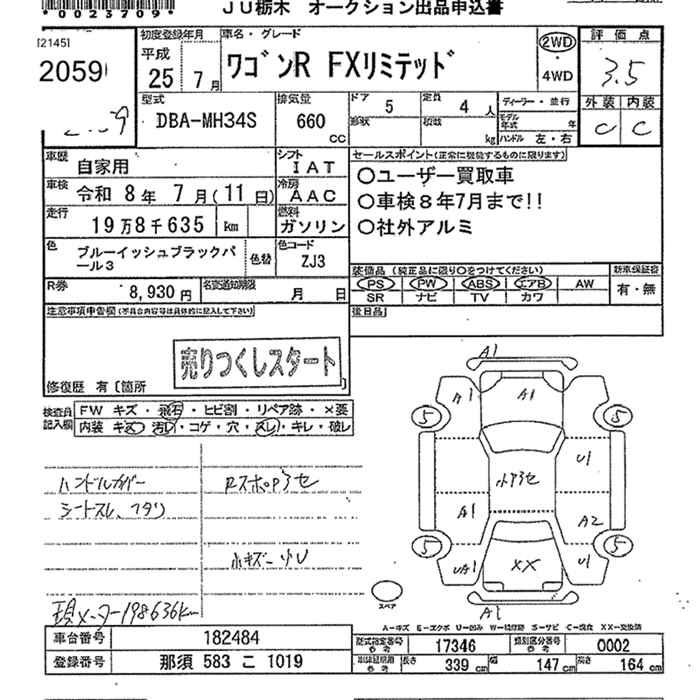 *0023709*
JU栃木 オークション出品申込書
[2145]
2059
初度登録年月
平成 25 年 7 月
車名・グレード
ワゴンR FXリミテッド
2WD
・
4WD
評価点
3.5
外装 内装
C C
型式
DBA-MH34S
排気量
660 CC
ドア 5
定員 4 人
形状
積載 kg
ディーラー・並行
モデル年式 年
ハンドル 左・右
車歴
自家用
シフト
IAT
車検
令和 8年 7月(11日)
冷房
AAC
走行
19万8千635 km
燃料
ガソリン
色
ブルーイッシュブラックパール3
色替
色コード
ZJ3
R券
8,930円
名変通知期限
月 日
セールスポイント(正常に機能するものに限ります)
○ユーザー買取車
○車検8年7月まで!!
○社外アルミ
装備品(純正品に限り○をつけてください)
新車保証書
PS PW ABS エアB AW
SR ナビ TV カワ
有・無
後日品
注意事項申告欄(不具合内容等は具体的に記入して下さい)
売りつくしスタート
修復歴 有〔箇所
検査員記入欄
FW キズ・飛石・ヒビ割・リペア跡・×要
内装 キズ・汚レ・コゲ・穴・スレ・キレ・破レ
ハンドルカバー
シートスレ、フタツ
小キズ
現メーター198636km
A1
A1
A1
5
5
U1
A1
A2
5
5
UA1
XX
U1
A1
スペア
A-キズ E-エクボ U-凹み W-補修跡 S-サビ C-腐食 XX-交換済
車台番号 182484
登録番号 那須 583 こ 1019
型式指定番号 参考 17346
類別区分番号 参考 0002
車両証明書 参考 長さ 339 cm 幅 147 cm 高さ 164 cm